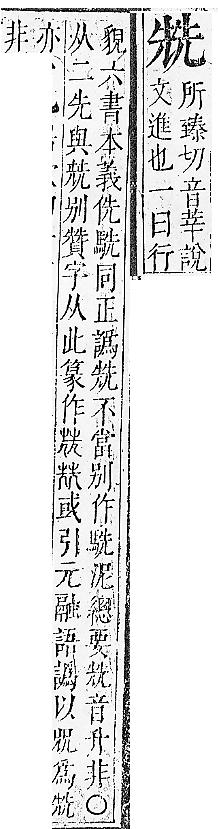 兟
所臻切音莘說
文進也一曰行
貌六書本義侁駪同正譌兟不當別作駪泥總要兟音升非〇
从二先與兟別贊字从此篆作或引元融語譌以為兟
亦
非